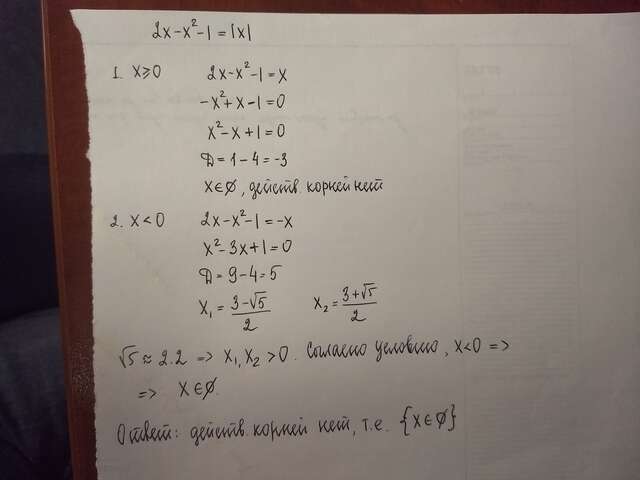 2x-x²-1=|x|
1. x⩾0 2x-x²-1=x
-x²+x-1=0
x²-x+1=0
D=1-4=-3
x∈∅, действ. корней нет
2. x<0 2x-x²-1=-x
x²-3x+1=0
D=9-4=5
x₁=(3-√5)/2 x₂=(3+√5)/2
√5≈2.2 => x₁,x₂>0. Согласно условию, x<0 =>
=> x∈∅.
Ответ: действ. корней нет, т.е. {x∈∅}